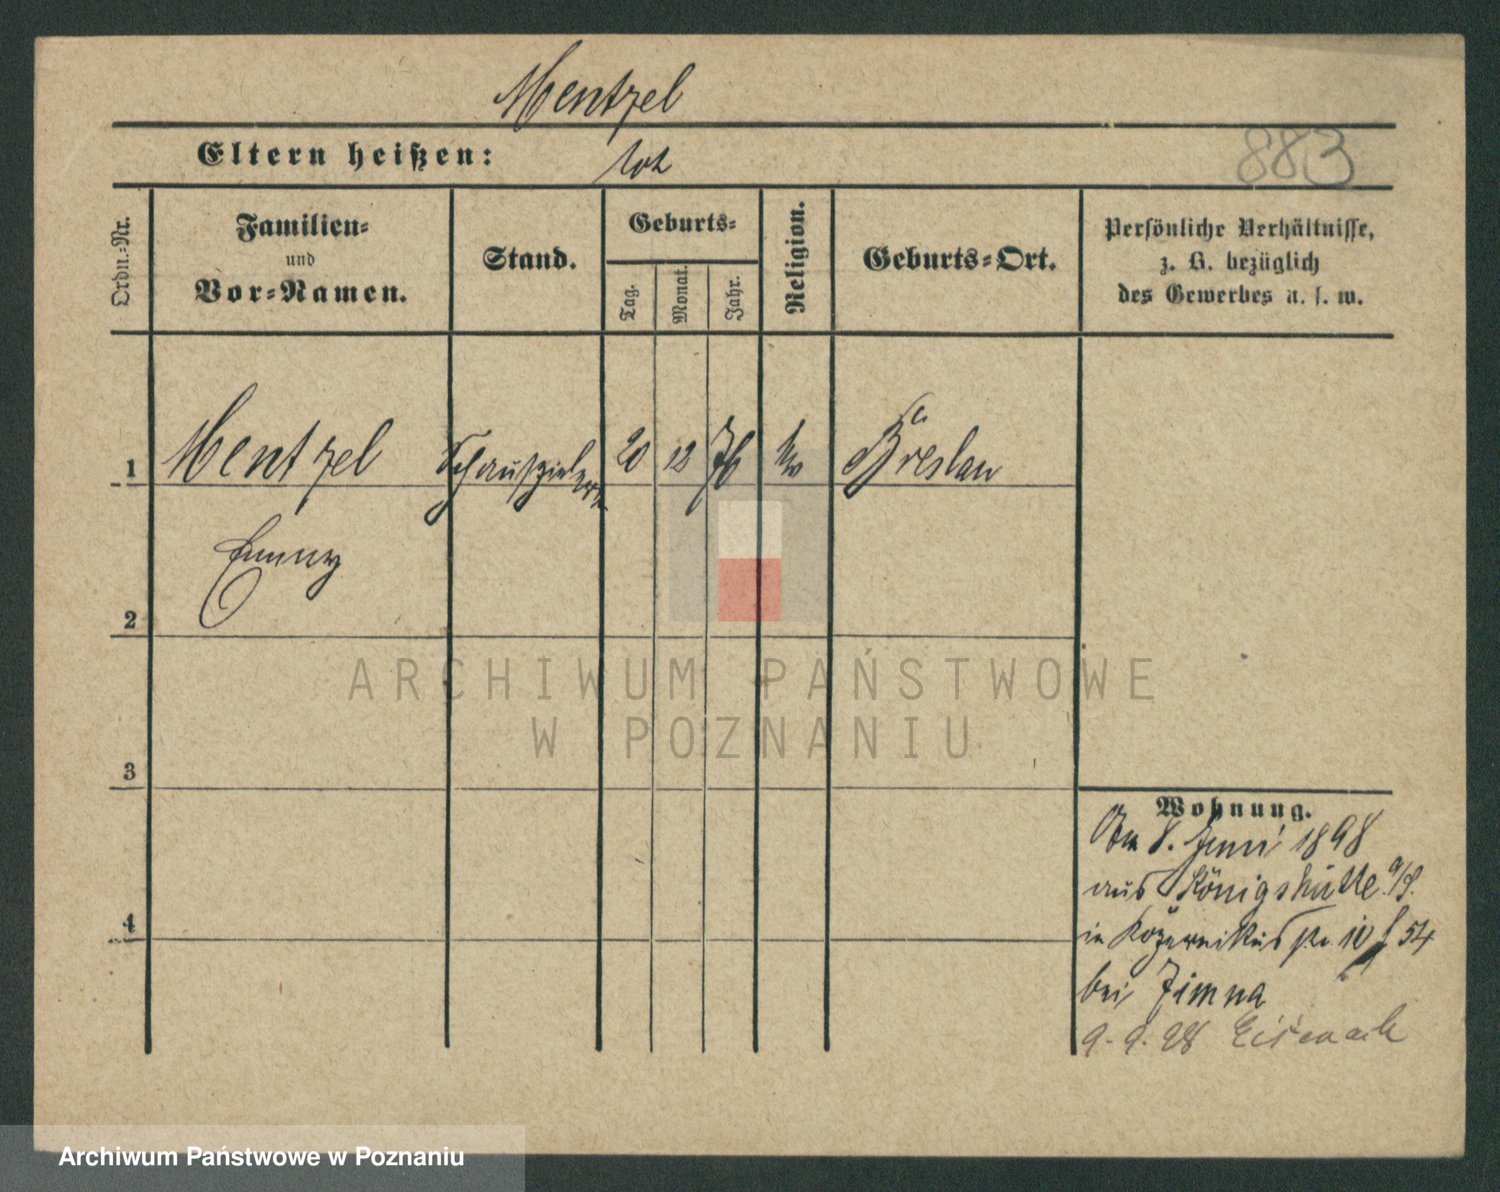 Mentzel
Eltern heißen: tot
883
Ordn.=Nr.
Familien=
und
Vor=Namen.
Stand.
Geburts=
Tag.
Monat.
Jahr.
Religion.
Geburts=Ort.
Persönliche Verhältnisse,
z. B. bezüglich
des Gewerbes u. s. w.
1 Mentzel Schauspielerin 20 12 76 Breslau
Emmy
2
3
4
Wohnung.
8. Juni 1898
aus Königshütte
in 54
bei Zimna
9.9.98 Eisenach
ARCHIWUM PAŃSTWOWE
W POZNANIU
Archiwum Państwowe w Poznaniu